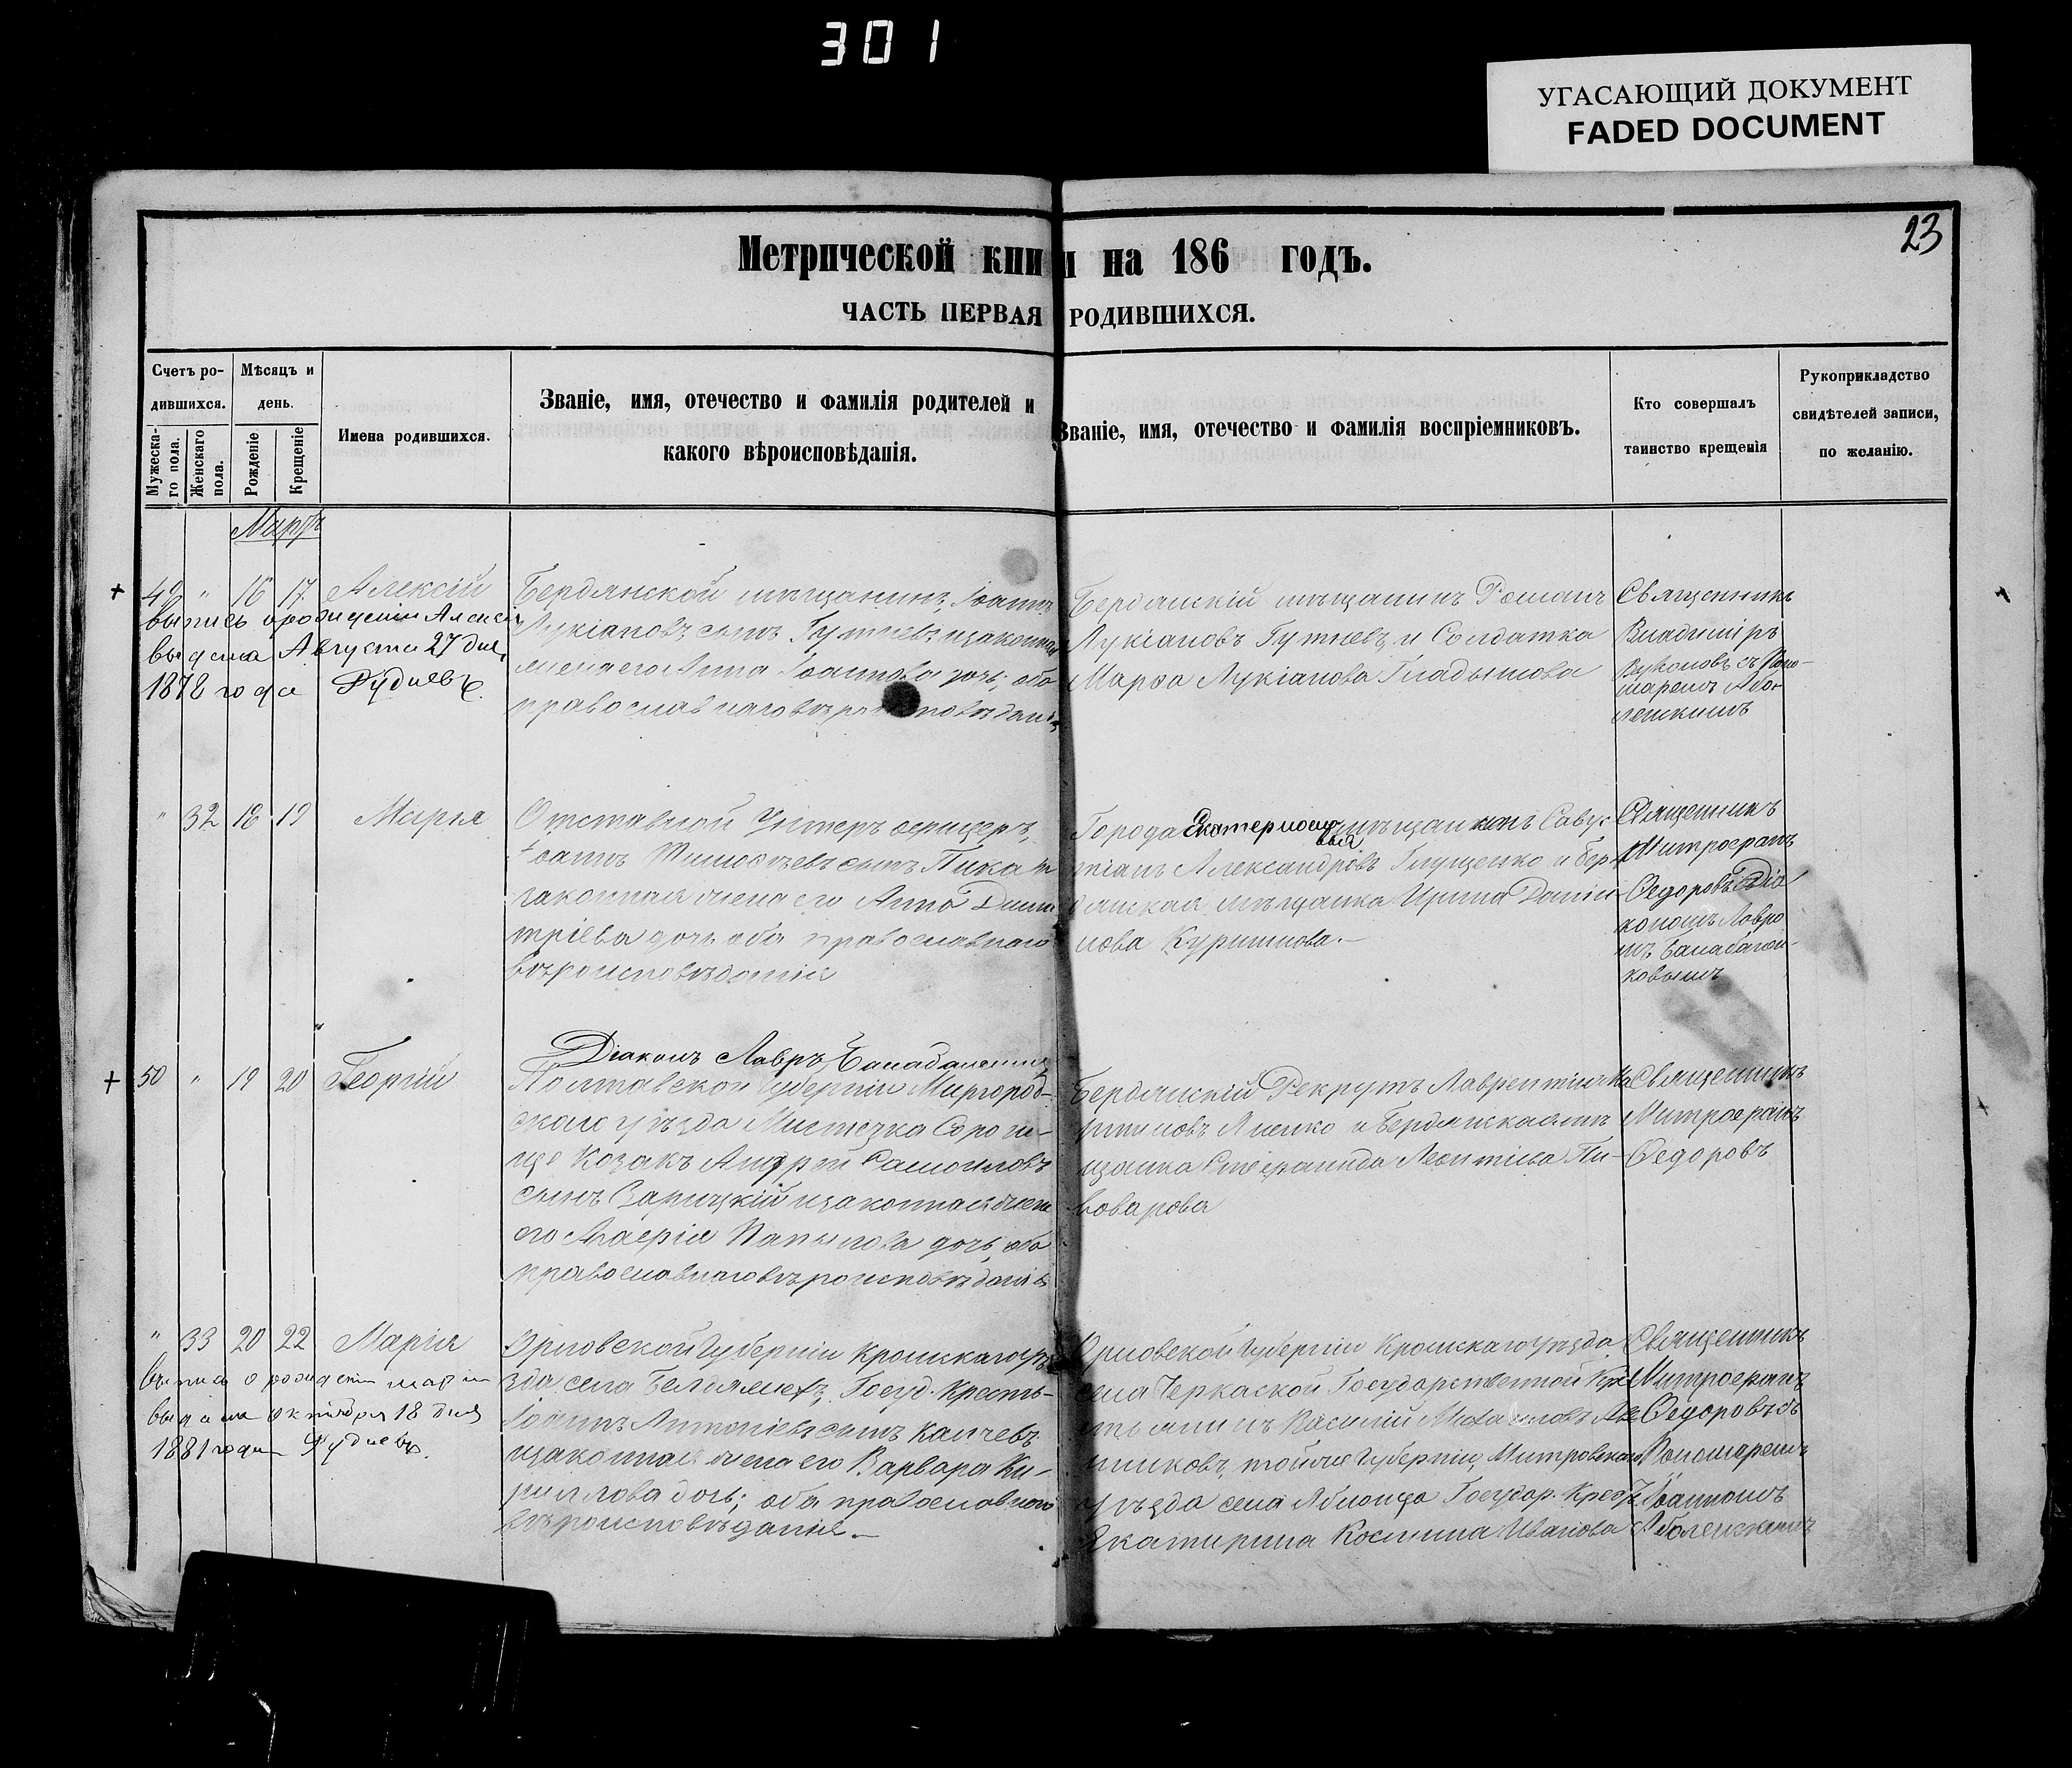 301
УГАСАЮЩИЙ ДОКУМЕНТ
FADED DOCUMENT
23
Метрической книги на 186 годъ.
ЧАСТЬ ПЕРВАЯ РОДИВШИХСЯ.
Счетъ ро-
дившихся.
Мужеска-
го пола.
Женскаго
пола.
Мѣсяцъ и
день.
Рожденіе
Крещеніе
Имена родившихся.
Званіе, имя, отечество и фамилія родителей и
какого вѣроисповѣданія.
Званіе, имя, отечество и фамилія воспріемниковъ.
Кто совершалъ
таинство крещенія
Рукоприкладство
свидѣтелей записи,
по желанію.
Мартъ
49 " 16 17 Алексій
выпись о рожденіи Алексія
выдана Августа 27 дня
1872 года
Бердянской мѣщанинъ Іоаннъ
Лукіановъ сынъ Гутневъ и законная
жена его Анна Іоаннова дочь; оба
православнаго вѣроисповѣданія
Бердянскій мѣщанинъ Романъ
Лукіановъ Гутневъ и Солдатка
Марѳа Лукіанова Гладышова
Священникъ
Владиміръ
съ Поно-
маремъ
" 32 18 19 Марія
Отставной Унтеръ офицеръ
Іоаннъ сынъ Пика и
законная жена его Анна Дими
тріева дочь оба православнаго
вѣроисповѣданія
Города мѣщанинъ Савас
тіанъ Александровъ Глущенко и Бер
дянская мѣщанка Ирина Даніи
лова Куришнова.-
Священникъ
Митрофанъ
Ѳедоровъ съ Діа
кономъ Лавро
мъ
ковымъ
Діаконъ Лавръ
50 " 19 20 Георгій
Полтавской Губерніи Миргород-
скаго уѣзда Мѣстечка Сорочи-
нце Козакъ Андрей Самоиловъ
сынъ Зарицкій и законная жена
его дочь, оба
православнаго вѣроисповѣданія
Бердянскій Рекрутъ Лаврентій Ма
ртиновъ и Бердянская мѣ
щанка Стефанида Леонтіева Пи-
воварова
Священникъ
Митрофанъ
Ѳедоровъ
" 33 20 22 Марія
выпись о рожденіи Маріи
выдана октября 18 дня
1881 года
Орловской Губерніи Кромскаго уѣ
зда села Госуд. Кресть-
Іоаннъ Антоніевъ сынъ Калчевъ
и законная жена его Варвара Ки-
риллова дочь; оба православнаго
вѣроисповѣданія.-
Орловской Губерніи Кромскаго уѣзда
села Черкаской Государственной Кре
стьянинъ Василій Михаиловъ
той же Губерніи, Митровскаго
уѣзда села Яблонца Государ. Крест.
Екатирина Космина Иванова
Священникъ
Митрофанъ
Ѳедоровъ съ
Пономаремъ
Іоанномъ
Аболенскимъ